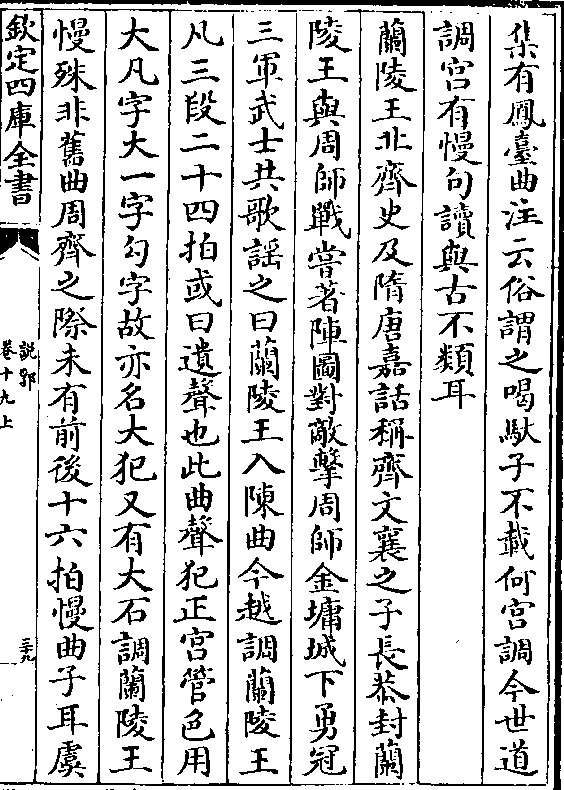 集有鳳臺曲注云俗謂之喝馱子不載何宫調今世道
調宫有慢句讀與古不類耳
蘭陵王北齊史及隋唐嘉話稱齊文襄之子長恭封蘭
陵王與周師戰嘗著陣圖對敵擊周師金墉城下勇冠
三軍武士共歌謡之曰蘭陵王入陳曲今越調蘭陵王
凡三段二十四拍或曰遺聲也此曲聲犯正宫管色用
大凡字大一字勾字故亦名大犯又有大石調蘭陵王
慢殊非舊曲周齊之際未有前後十六拍慢曲子耳虞
欽定四庫全書
說郛
卷十九上
三十九